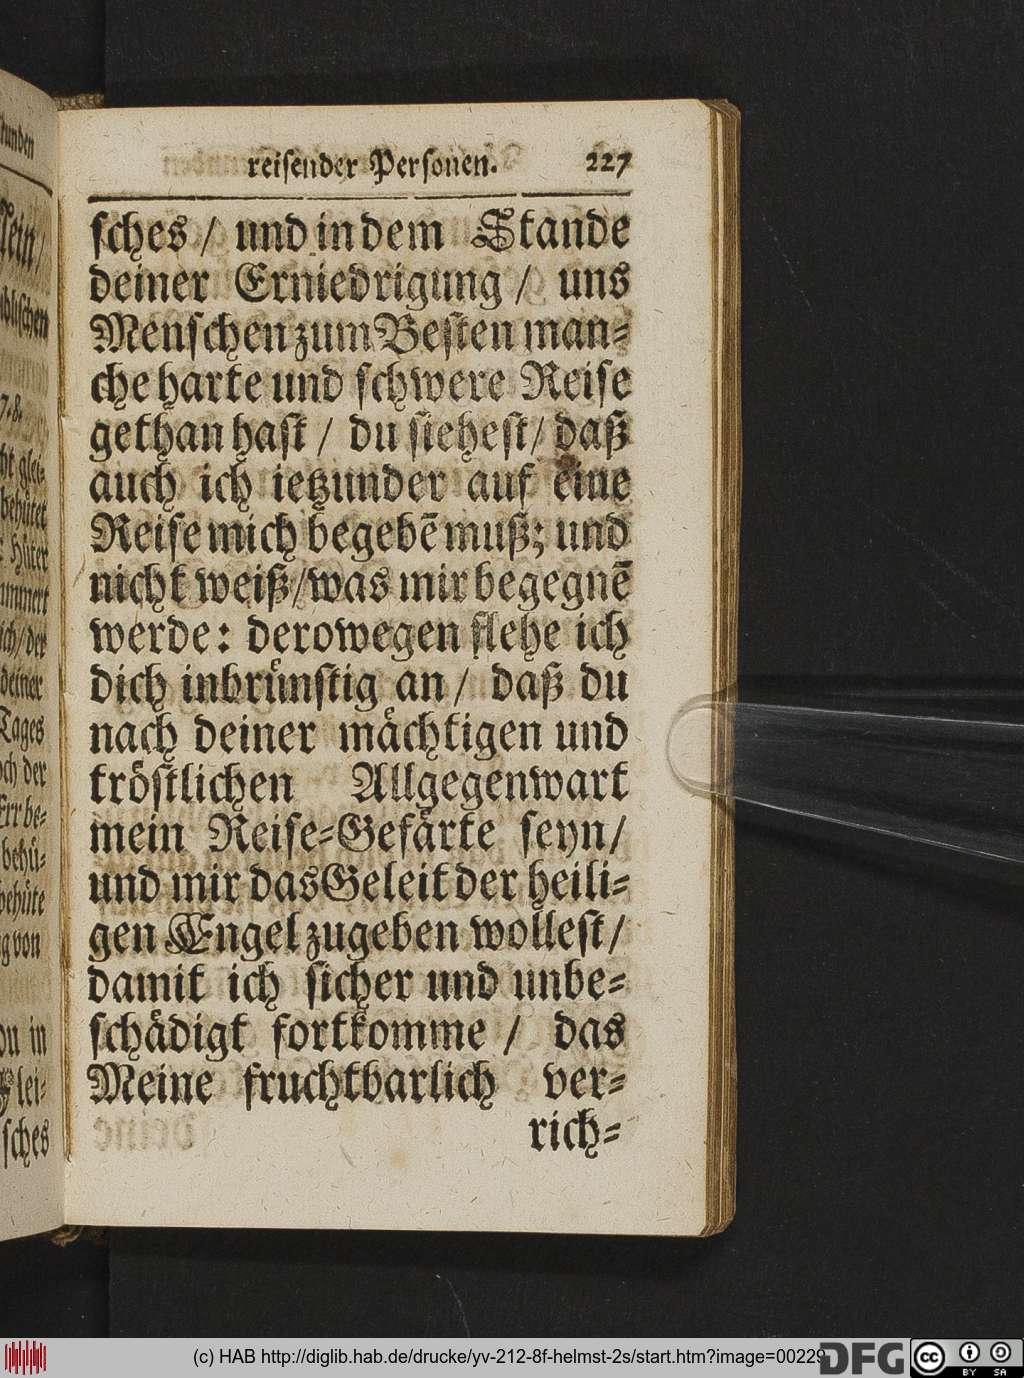 reisender Personen. 227
sches / und in dem Stande
deiner Erniedrigung / uns
Menschen zum Besten man-
che harte und schwere Reise
gethan hast / du siehest / daß
auch ich ietzunder auf eine
Reise mich begebē muß; und
nicht weiß / was mir begegnē
werde: derowegen flehe ich
dich inbrünstig an / daß du
nach deiner mächtigen und
tröstlichen Allgegenwart
mein Reise-Gefärte seyn /
und mir das Geleit der heili-
gen Engel zugeben wollest /
damit ich sicher und unbe-
schädigt fortkomme / das
Meine fruchtbarlich ver-
rich-
7. 8.
glei-
behütet
Hüter
ich / der
deiner
Tages
der
be-
behü-
behüte
von
in
Flei-
sches
(c) HAB http://diglib.hab.de/drucke/yv-212-8f-helmst-2s/start.htm?image=00229
DFG
cc
BY SA